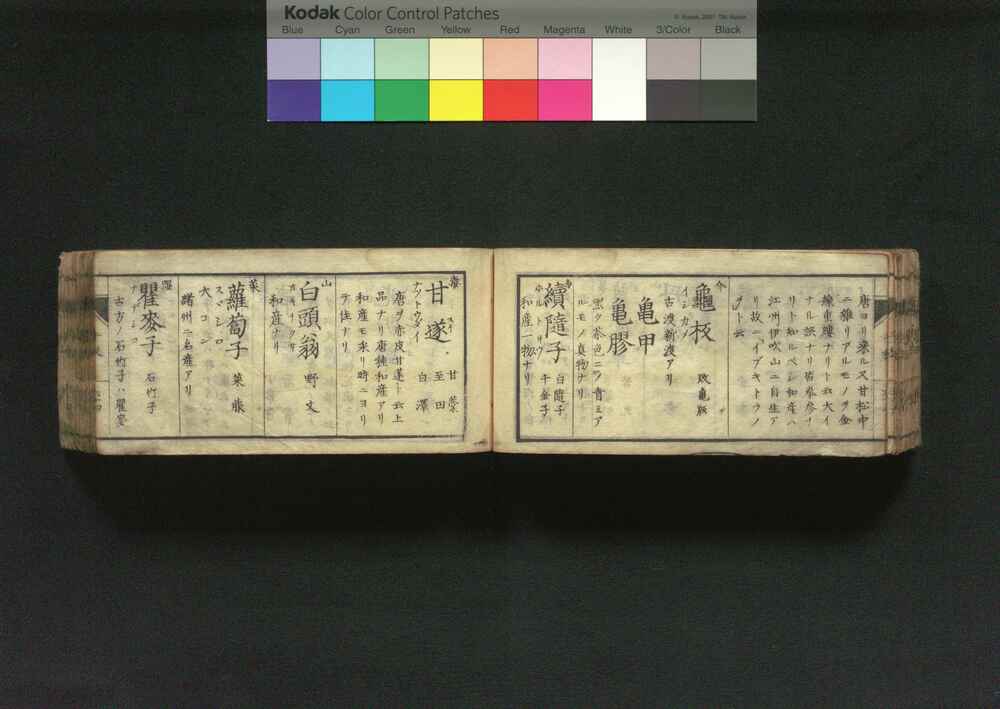 Kodak Color Control Patches
© Kodak, 2007 TM: Kodak
Blue Cyan Green Yellow Red Magenta White 3/Color Black
唐ヨリ来ル又甘松中
ニ雜リアルモノヲ金
ナル誤ナリ
リト知ルベシ和産ハ
江州伊吹山ニ自生ア
リ故ニイブキトウノ
グト云
龜板 敗龜版
イシガメ
古渡新渡アリ
亀甲
亀膠
黒ク茶色ニヲ青ミア
ルモノ真物ナリ
續隨子 白隨子 千金子
ホルトサウ
和産一物ナリ
甘遂 甘藁 至田 白澤
ナツトウダイ
唐ヲ赤皮甘遂ト云上
品ナリ唐種和産アリ
和産モ来リ時ニヨリ
テ佳ナリ
白頭翁 野丈
和産ナリ
蘿蔔子 萊菔
スヾシロ
大コン
諸州ニ名産アリ
瞿麥子 石竹子
ナデシコ
古方ノ石竹子ハ瞿麥